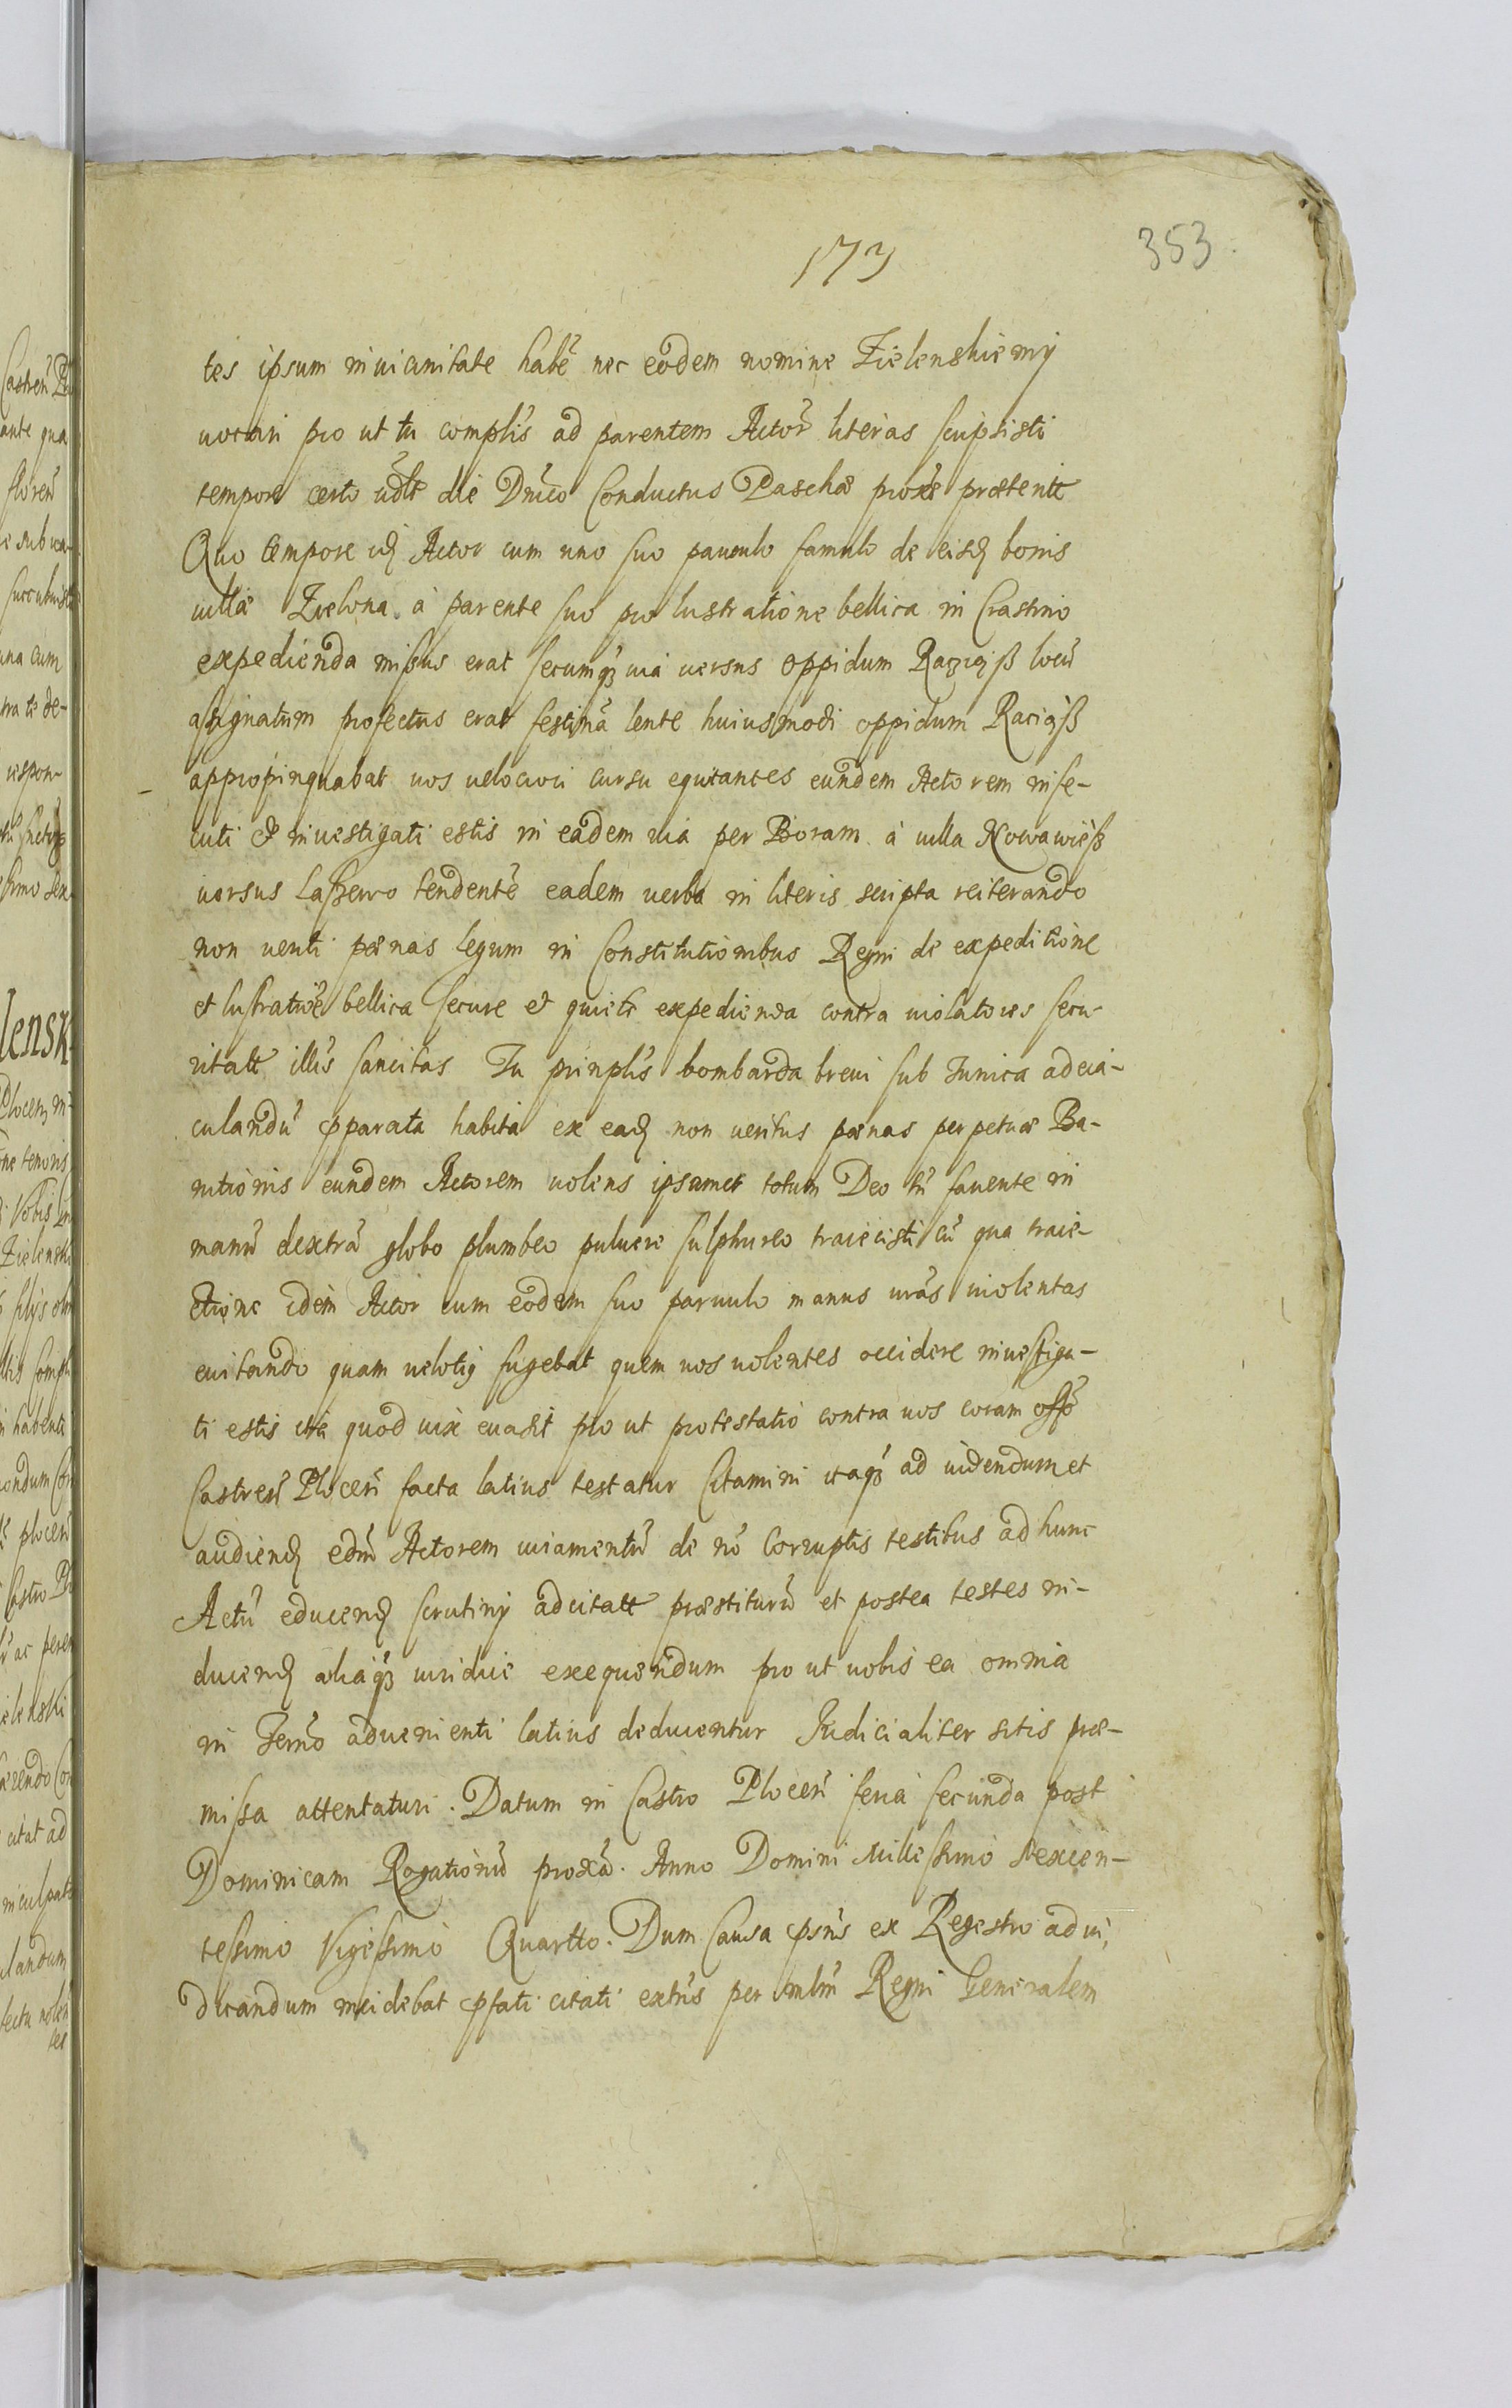 173
353
tes ipsum in uicinitate habē nec eodem nomine Zielenskiemy
uocari pro ut tu complīs ad parentem Actōr literas scripsisti
tempore certo ūdlt die Dnīco Conductus Paschæ proxē præteritt
Quo tempore idꝫ Actor cum uno suo paruulo famulo de eisdꝫ bonis
uillæ Zielona à parente suo pro lustratione bellica in Crastino
expedienda missus erat secumqꝫ uia uersus oppidum Raciąß locū
assignatum profectus erat festinā lente huiusmodi oppidum Raciąß
appropinquabat uos uelociori cursu equitantes eundem Actorem inse-
cuti et inuestigati estis in eadem uia per Boram à uilla Nowawieß
uersus tendentē eadem uerba in literis scripta reiterando
non ueriti pœnas legum in Constitutionibus Regni de expeditione
et lustratioē bellica secure et quiete expedienda contra uiolatores secu-
ritatt illīs sancitas Tu prinplīs bombarda breui sub Tunica ad eia-
culandū pparata habita ex eadꝫ non ueritus pœnas perpetuæ Ba-
nitionis eundem Actorem uolens ipsamet totum Deo tn̄ fauente in
manū dextrā globo plumbeo puluere sulphureo traiecisti cū qua traie-
ctione idem Actor cum eodem suo paruulo manus urās uiolentas
euitando quam uelotiꝫ fugebat quem uos uolentes occidere inuestiga-
ti estis ita quod uix euasit pro ut protestatio contra uos coram offō
Castreñ Ploceñ facta latius testatur Citamini itaqꝫ ad uidendum et
audiendꝫ eūdm Actorem iuramentū de nō Corruptis testibus ad hunc
Actū educendꝫ scrutinÿ ad citatt præstiturū et postea testes in-
ducendꝫ aliaqꝫ iuridice exequendum pro ut uobis ea omnia
in Termō aduenienti latius deducentur Iudicialiter sitis præ-
missa attentaturi. Datum in Castro Ploceñ feria secunda post
Dominicam Rogationū proxā. Anno Domini Millessimo Sexcen-
tessimo Vigessimo Quartto. Dum Causa pns̄ ex Regestro ad iu-
dicandum incidebat pfati citati extīs per mlm̄ Regni Generalem